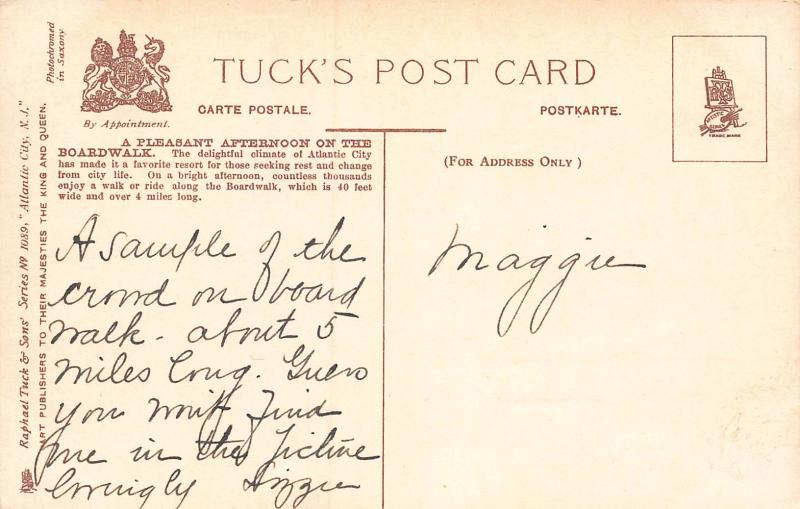 Photochromed
in Saxony
By Appointment.
TUCK'S POST CARD
CARTE POSTALE.
POSTKARTE.
(FOR ADDRESS ONLY)
TRADE MARK
Raphael Tuck & Sons' Series Nº 1089, "Atlantic City, N.J."
ART PUBLISHERS TO THEIR MAJESTIES THE KING AND QUEEN.
A PLEASANT AFTERNOON ON THE
BOARDWALK. The delightful climate of Atlantic City
has made it a favorite resort for those seeking rest and change
from city life. On a bright afternoon, countless thousands
enjoy a walk or ride along the Boardwalk, which is 40 feet
wide and over 4 miles long.
A sample of the
crowd on board
walk - about 5
miles long. Guess
you wont find
me in the picture
lovingly Lizzie
Maggie